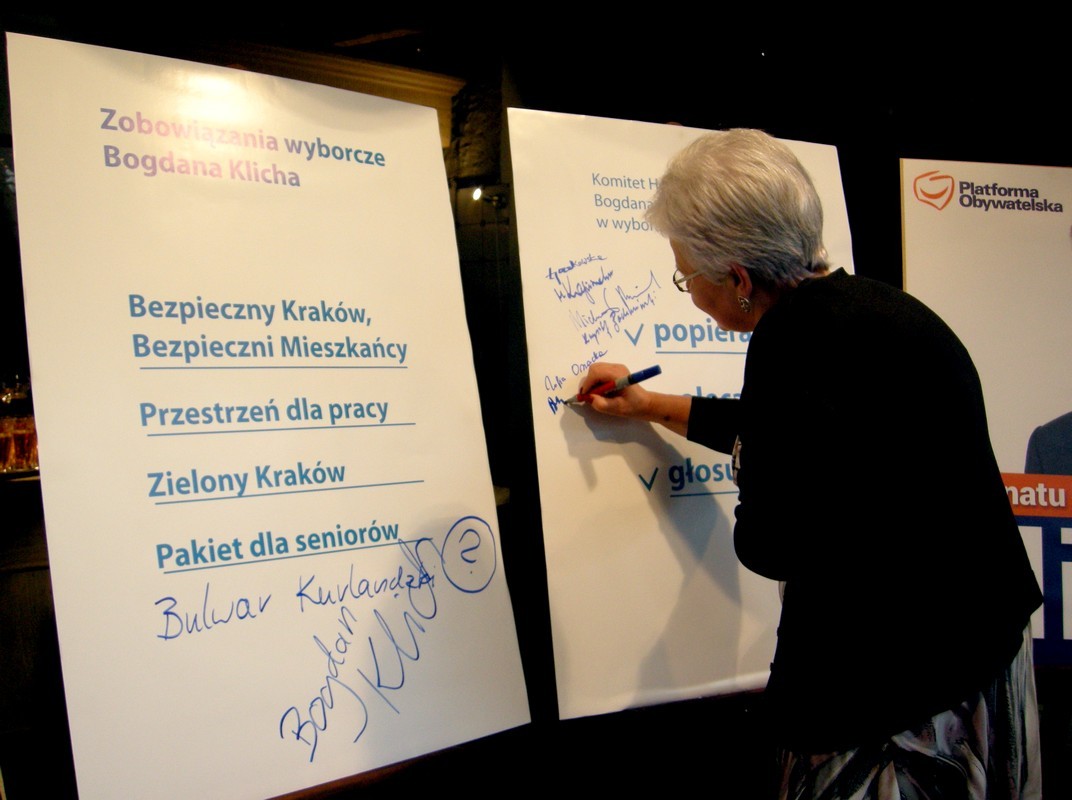 Zobowiązania wyborcze
Bogdana Klicha
Bezpieczny Kraków,
Bezpieczni Mieszkańcy
Przestrzeń dla pracy
Zielony Kraków
Pakiet dla seniorów
Bulwar Kurlandzki ?
Bogdan
Klich
Komitet H
Bogdana
w wybor
✓ popiera
✓ głosu
Platforma
Obywatelska
natu